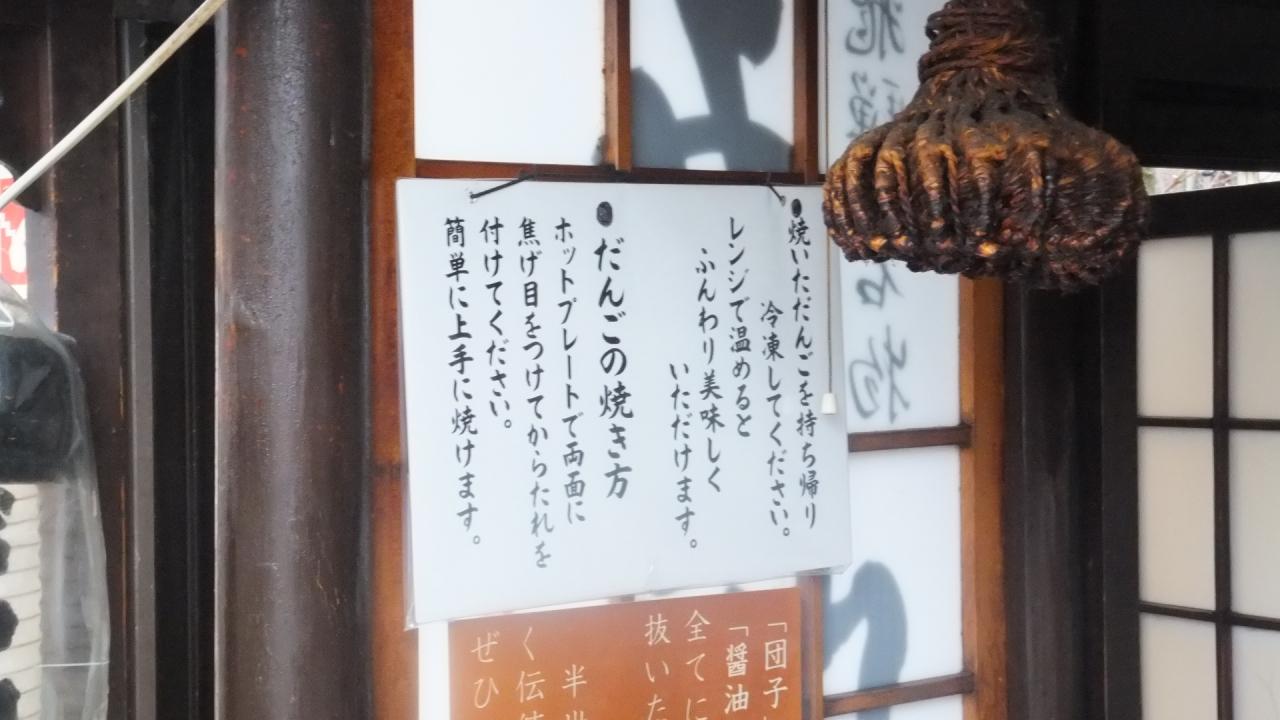 ●焼いただんごを持ち帰り
冷凍してください。
レンジで温めると
ふんわり美味しく
いただけます。
●だんごの焼き方
ホットプレートで両面に
焦げ目をつけてからたれを
付けてください。
簡単に上手に焼けます。
「団子
「醤油
全てに
抜いた
半世
く伝統
ぜひ